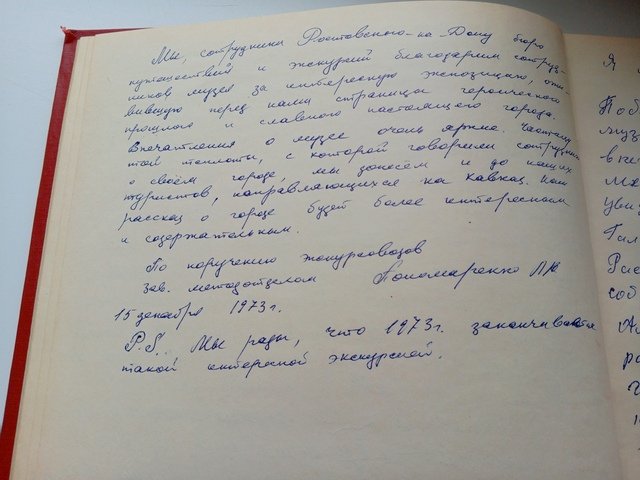 Мы, сотрудники Ростовского-на-Дону бюро
путешествий и экскурсий благодарим сотруд-
ников музея за интересную экспозицию, ожи-
вившую перед нами страницы героического
прошлого и славного настоящего города.
Впечатления о музее очень яркие. Частицу
той теплоты, с которой говорили сотрудники
о своём городе, мы донесём и до наших
туристов, направляющихся на Кавказ. Наш
рассказ о городе будет более интересным
и содержательным.
По поручению экскурсоводов
Зав. методотделом Пономаренко
15 декабря 1973г.
P.S. Мы рады, что 1973г. заканчивается
такой интересной экскурсией.
Я